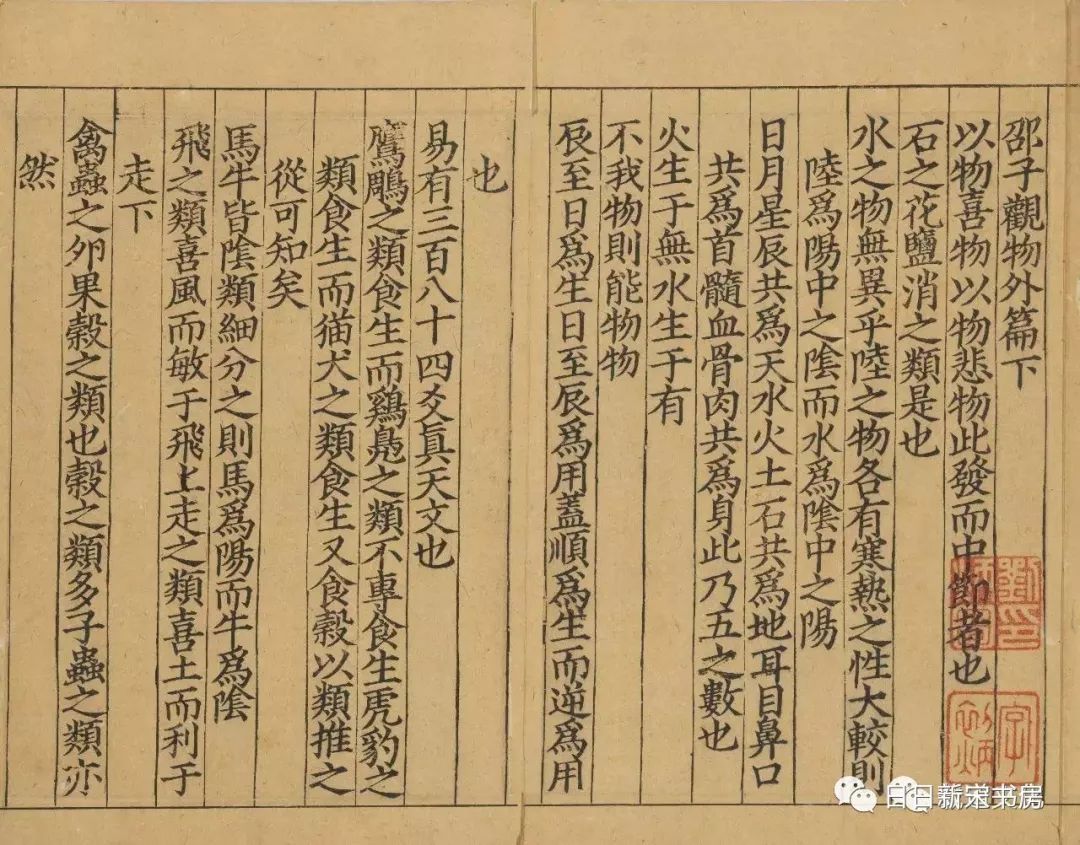 邵子觀物外篇下
以物喜物以物悲物此發而中節者也
石之花鹽消之類是也
水之物無異乎陸之物各有寒熱之性大較則
陸爲陽中之陰而水爲陰中之陽
日月星辰共爲天水火土石共爲地耳目鼻口
共爲首髓血骨肉共爲身此乃五之數也
火生于無水生于有
不我物則能物物
辰至日爲生日至辰爲用蓋順爲生而逆爲用
也
易有三百八十四爻眞天文也
鷹鵰之類食生而鷄鳧之類不專食生虎豹之
類食生而猫犬之類食生又食穀以類推之
從可知矣
馬牛皆陰類細分之則馬爲陽而牛爲陰
飛之類喜風而敏于飛上走之類喜土而利于
走下
禽蟲之卵果穀之類也穀之類多子蟲之類亦
然
日日新宋书房